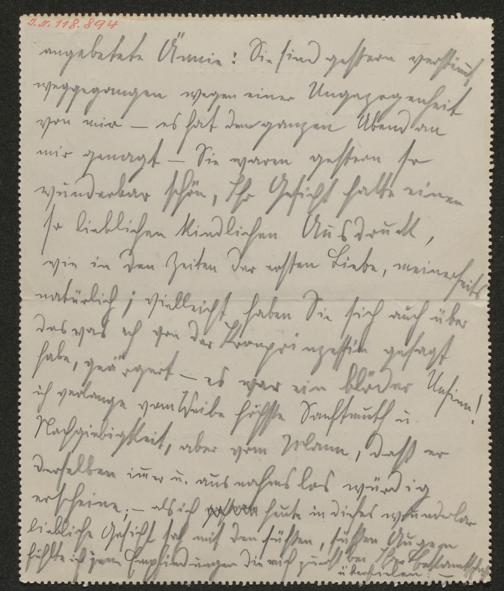 I.N. 118.894
angebetete Ännie: Sie sind gestern verstimmt
weggegangen wegen einer Ungezogenheit
von mir — es hat den ganzen Abend an
mir genagt — Sie waren gestern so
wunderbar schön, Ihr Gesicht hatte einen
so lieblichen kindlichen Ausdruck,
wie in den Zeiten der ersten Liebe, meinerseits
natürlich; vielleicht haben Sie sich auch über
das was ich von der Kronprinzessin gesagt
habe, geärgert — es war ein blöder Unsinn!
ich verlange vom Weibe höchste Sanftmuth u.
Nachgiebigkeit, aber vom Mann, daß er
derselben immer u. ausnahmslos würdig
erscheine. — als ich heute in dieses wunderbar
liebliche Gesicht sah mit den süßen, süßen Augen
fühlte ich jene Empfindungen die mich zuerst bei Ihrer Bekanntschaft
überfielen. —